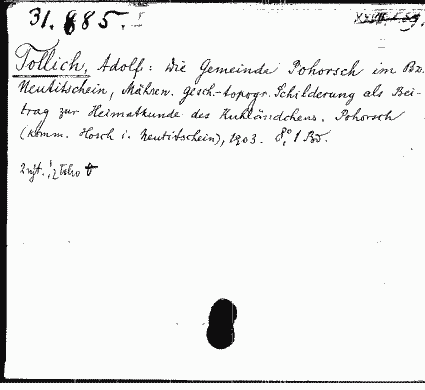 31.885. I
Tollich, Adolf: Die Gemeinde Pohorsch im Bz.
Neutitschein, Mähren. Gesch.-topogr. Schilderung als Bei-
trag zur Heimatkunde des Kuhländchens. Pohorsch
(Komm. Hosch i. Neutitschein), 1903. 8.° 1 Bd.